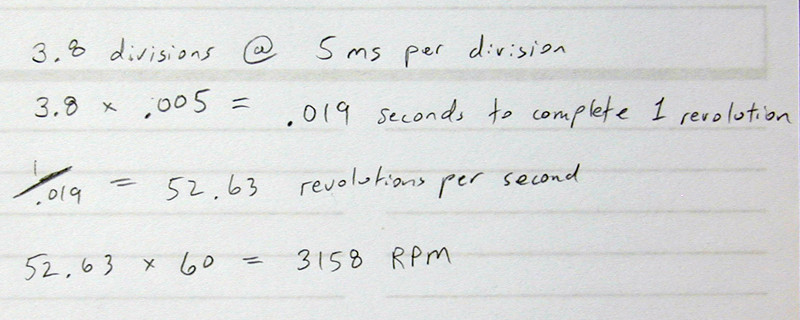 3.8 divisions @ 5ms per division
3.8 x .005 = .019 seconds to complete 1 revolution
1/.019 = 52.63 revolutions per second
52.63 x 60 = 3158 RPM